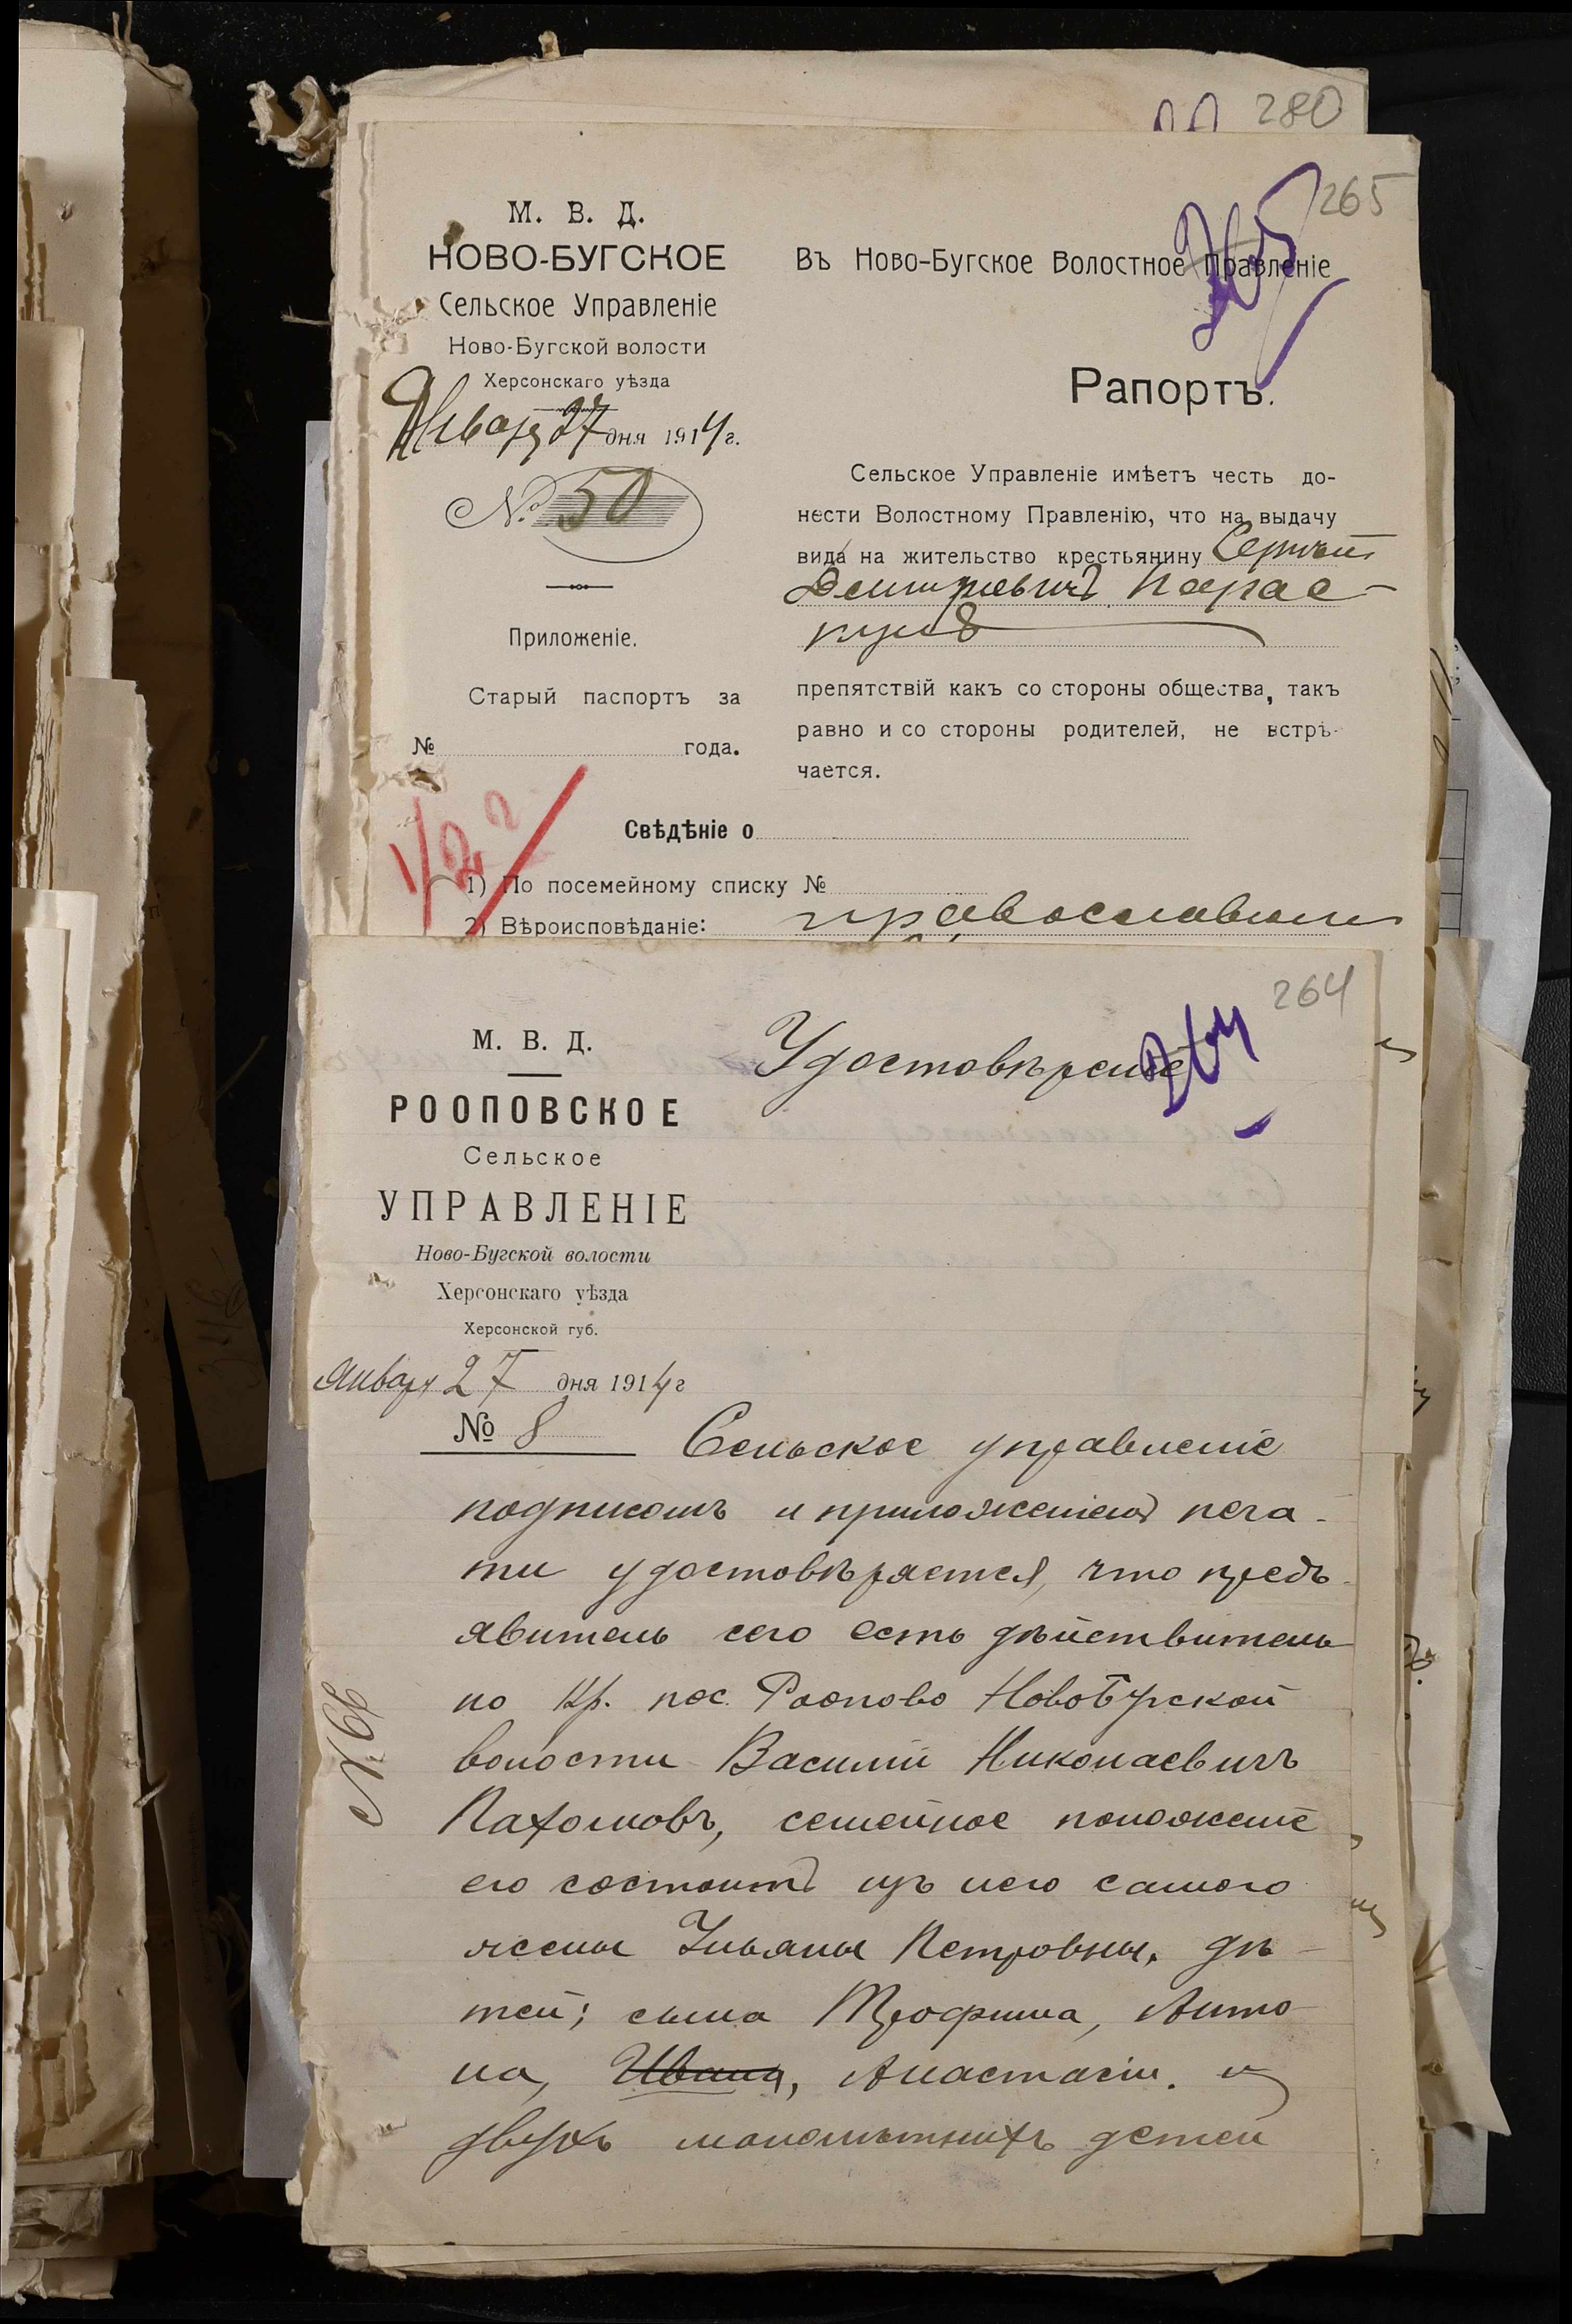 280
265
265
М. В. Д.
НОВО-БУГСКОЕ
Сельское Управленіе
Ново-Бугской волости
Херсонскаго уѣзда
Января 27 дня 1914 г.
№ 50
Приложеніе.
Старый паспортъ за
№ года.
Въ Ново-Бугское Волостное Правленіе
Рапортъ.
Сельское Управленіе имѣетъ честь до-
нести Волостному Правленію, что на выдачу
вида на жительство крестьянину Сергѣй
Дмитріевичъ
препятствій какъ со стороны общества, такъ
равно и со стороны родителей, не встрѣ-
чается.
Свѣдѣніе о
1) По посемейному списку №
2) Вѣроисповѣданіе: православнаго
264
264
М. В. Д.
РООПОВСКОЕ
Сельское
УПРАВЛЕНІЕ
Ново-Бугской волости
Херсонскаго уѣзда
Херсонской губ.
Января 27 дня 1914 г
№ 8
Удостовѣреніе
Сельское управленіе
подписомъ и приложеніемъ печа-
ти удостовѣряется, что предъ-
явитель сего есть дѣйствитель
но кр. пос. Роопово НовоБугской
волости Василій Николаевичъ
Пахомовъ, семейное положеніе
его состоитъ изъ него самого
жены Ульяны Петровны, дѣ-
тей; сына Трофима, Анто-
на, Ивана, Анастасіи. и
двухъ малолѣтнихъ детей